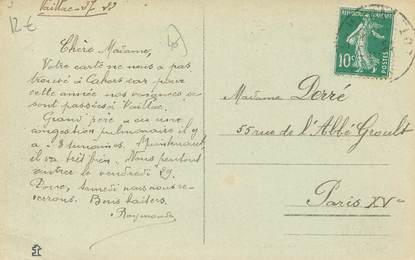 12 €
Vaillac
Chère Madame,
Votre carte ne nous a pas
trouvé à Cahors car pour
cette année nos vacances se
sont passées à Vaillac.
Grand'père a eu une
congestion pulmonaire il y
a 3 semaines. Maintenant
il va très bien. Nous
rentrer le vendredi 29.
Donc, samedi nous nous re-
verrons. Bons baisers.
Raymonde
REPUBLIQUE FRANCAISE
10c
POSTES
Madame Derré
55 rue de l'Abbé Groult
Paris XVe